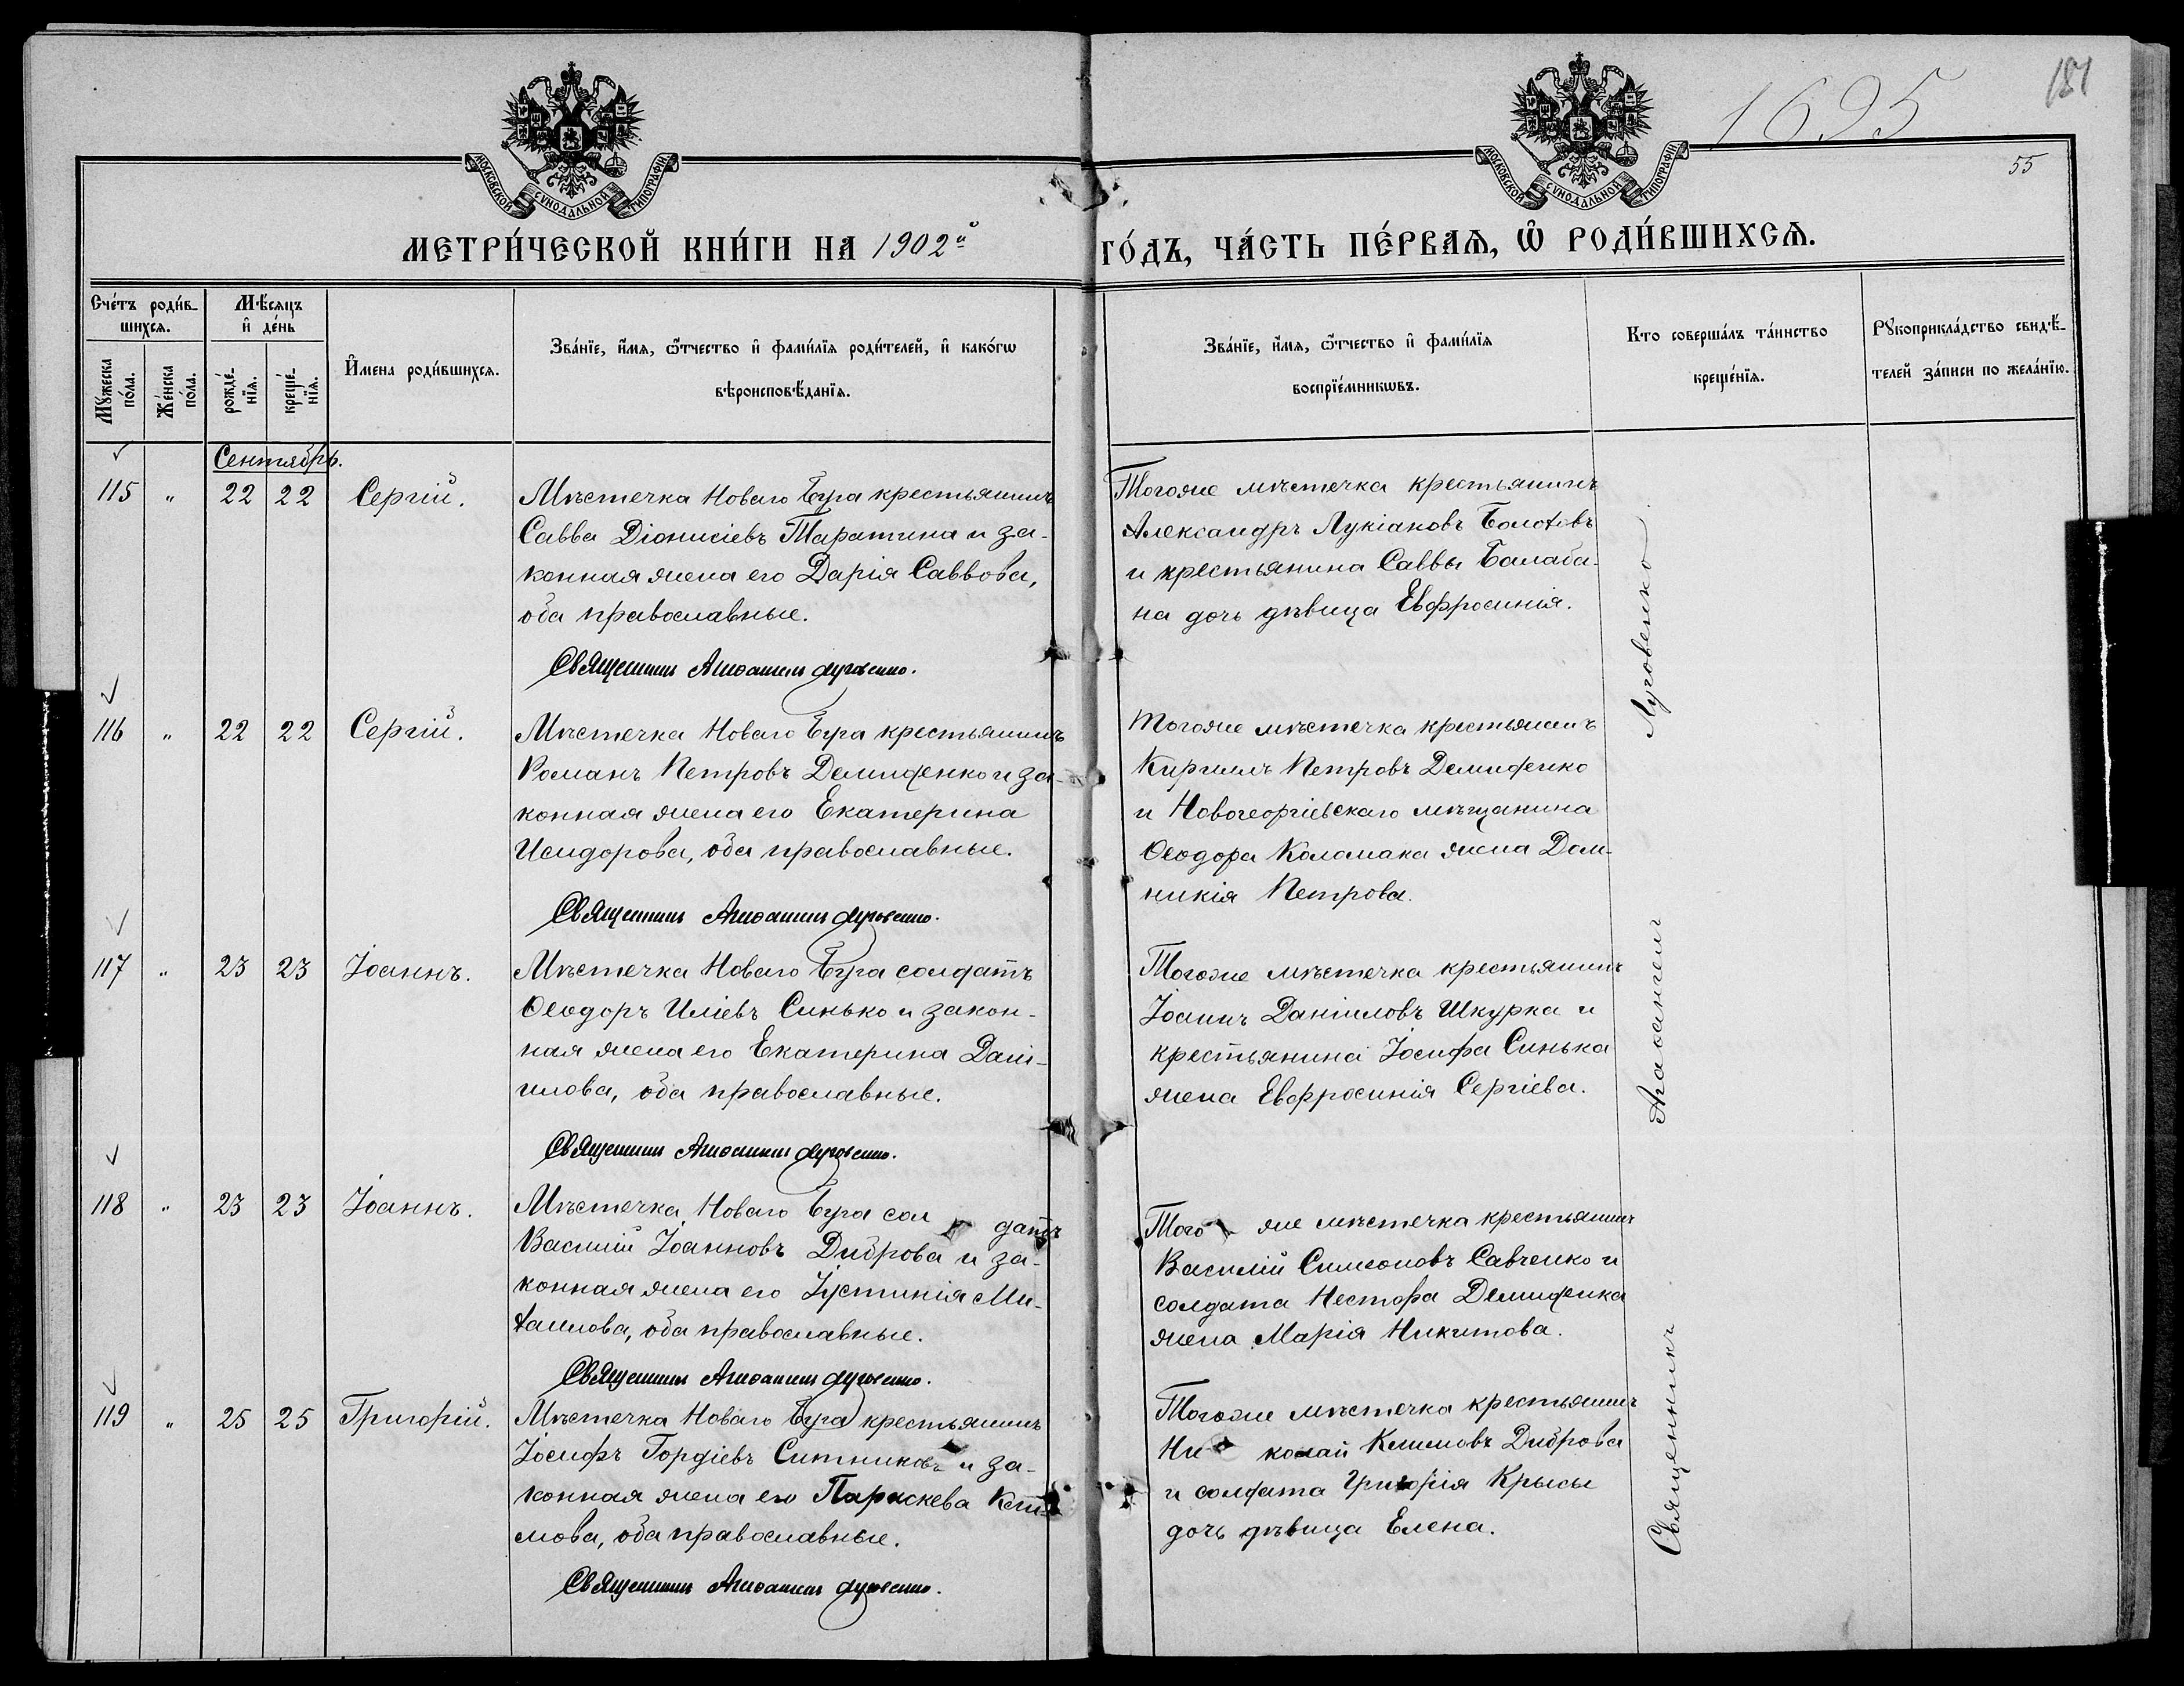 1695
181
55
МОСКОВСКОЙ СУНОДАЛЬНОЙ ТИПОГРАФІИ
МОСКОВСКОЙ СУНОДАЛЬНОЙ ТИПОГРАФІИ
МЕТРИ́ЧЕСКОЙ КНИ́ГИ НА 1902й
ГО́ДЪ, ЧА́СТЬ ПЕ́РВАѦ, Ѡ҆ РОДИ́ВШИХСѦ.
Сче́тъ роди́в-
шихсѧ.
Мѣсяцъ
и҆ де́нь
Мꙋ́жеска по́ла.
Же́нска по́ла.
рожде́-нїѧ.
креще́-нїѧ.
И҆мена роди́вшихсѧ.
Зва́нїе, и҆́мѧ, ѻ҆́тчество и҆ фами́лїѧ роди́телей, и҆ како́гѡ
вѣроисповѣ́данїѧ.
Зва́нїе, и҆́мѧ, ѻ҆́тчество и҆ фами́лїѧ
воспрїе́мникѡвъ.
Кто соверша́лъ та́инство
креще́нїѧ.
Рꙋкоприкла́дство свидѣ́-
телей за́писи по жела́нїю.
Сентябрь.
115 " 22 22 Сергій.
Мѣстечка Новаго Буга крестьянинъ
Савва Діонисіевъ Таратина и за-
конная жена его Дарія Саввова,
оба православные.
Священникъ Агаѳангелъ Луговенко.
Тогоже мѣстечка крестьянинъ
Александръ Лукіановъ Болотовъ
и крестьянина Саввы Балаба-
на дочь дѣвица Евфросинія.
116 " 22 22 Сергій.
Мѣстечка Новаго Буга крестьянинъ
Романъ Петровъ Демиденко и за-
конная жена его Екатерина
Исидорова, оба православные.
Священникъ Агаѳангелъ Луговенко.
Тогоже мѣстечка крестьянинъ
Кириллъ Петровъ Демиденко
и Новогеоргіевскаго мѣщанина
Ѳеодора Коломака жена Дом-
никія Петрова.
117 " 23 23 Іоаннъ.
Мѣстечка Новаго Буга солдатъ
Ѳеодоръ Иліевъ Синько и закон-
ная жена его Екатерина Дані-
илова, оба православные.
Священникъ Агаѳангелъ Луговенко.
Тогоже мѣстечка крестьянинъ
Іоаннъ Даніиловъ Шкурка и
крестьянина Іосифа Синька
жена Евфросинія Сергіева.
118 " 23 23 Іоаннъ.
Мѣстечка Новаго Буга сол датъ
Василій Іоанновъ Диброва и за-
конная жена его Іустинія Ми-
хаилова, оба православные.
Священникъ Агаѳангелъ Луговенко.
Того же мѣстечка крестьянинъ
Василій Симеоновъ Савченко и
солдата Нестора Демиденка
жена Марія Никитова.
119 " 25 25 Григорій.
Мѣстечка Новаго Буга крестьянинъ
Іосифъ Гордіевъ Ситниковъ и за-
конная жена его Параскева Кли-
мова, оба православные.
Священникъ Агаѳангелъ Луговенко.
Тогоже мѣстечка крестьянинъ
Ни колай Климовъ Диброва
и солдата Григорія Крысы
дочь дѣвица Елена.
Священникъ Агаѳангелъ Луговенко